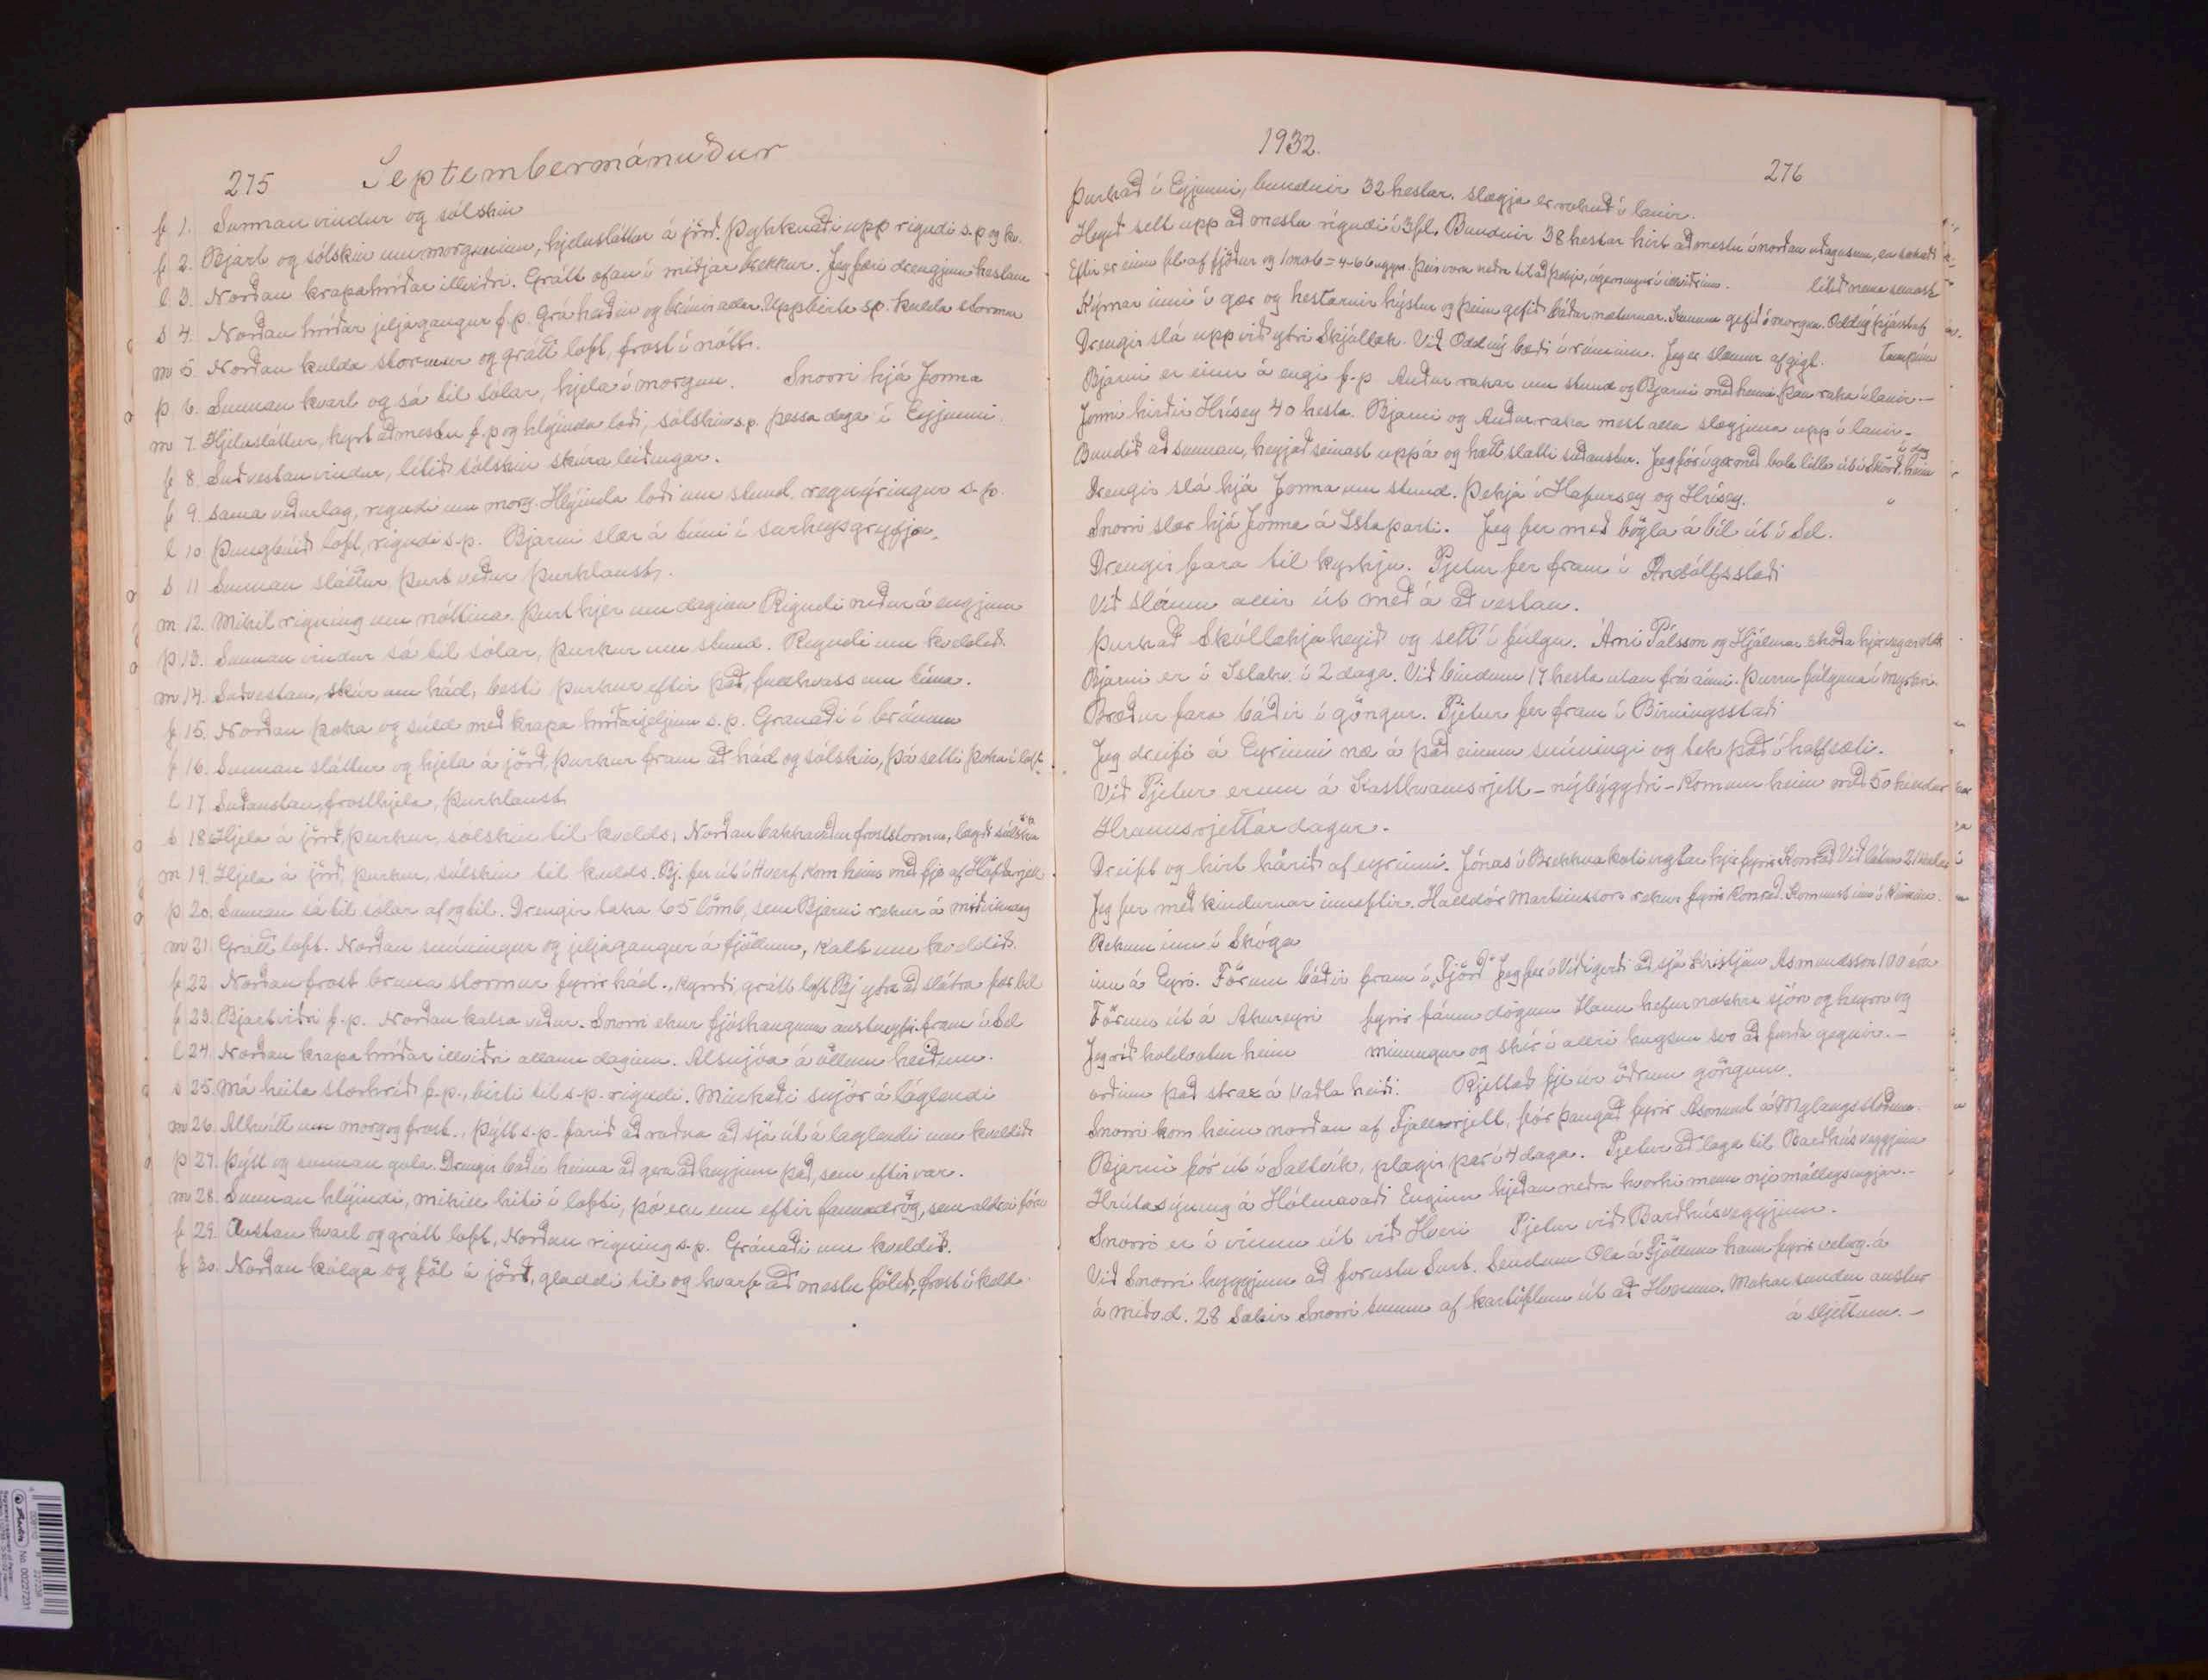 275 Septembermánuður
f 1. Sunnan vindur og sólskin
f 2. Bjart og sólskin um morguninn, hjelusláttur á jörð. Þykknaði upp rigndi s.p og kv.
l 3. Norðan krapahríðar illviðri. Grátt ofan í miðjar brekkur. Jeg færi drengjum hestana
s 4. Norðan hríðar jeljagangur f.p. Grá heiðin og brúnir allar. Uppbirta s.p. kulda stormur
m 5. Norðan kulda stormur og grátt loft, frost í nótt.
þ 6. Sunnan kvarl og sá til sólar, hjela í morgun. Snorri hjá Jonna
m 7. Hjelusláttur, kyrt að mestu f.p og hlýinda loði, sólskin s.p. þessa daga í Eyjunni.
f 8. Suðvestan vindur, lítið sólskin skúra leiðingar.
f 9. sama veðurlag, rigndi um morg. Hlýinda loði um stund, regnýringur s.p.
l 10 Þungbúið loft, rigndi s.p. Bjarni slær á túni í surheysgryfju.
s 11 Sunnan sláttur þurt veður þurklaust.
m 12. Mikil rigning um nóttina. Þurt hjer um daginn Rigndi niður á engjum
þ 13. Sunnan vindur sá til sólar, þurkur um stund. Rigndi um kveldið.
m 14. Suðvestan, skúr um hád, besti þurkur eftir það, fullhvass um tíma.
f 15. Norðan þoka og súld með krapa hríðarjeljum s.p. Gránaði í brúnum
f 16. Sunnan sláttur og hjela á jörð, þurkur fram að hád og sólskin, þá setti þoku í loft.
l 17 Suðaustan, frosthjela, þurklaust
s 18 Hjela á jörð, þurkur, sólskin til kvelds, Norðan bakkaveður froststormur, lægði sólskin
m 19. Hjela á jörð, þurkur, sólskin til kvelds. Bj. fer út í Hverf kom heim með fje af Höfðarjett
þ 20. Sunnan sá til sólar af og til. Drengir taka 65 lömb, sem Bjarni rekur á miðvikudag
m 21. Grátt loft. Norðan snúningur og jeljagangur á fjöllum, kalt um kveldið.
f 22 Norðan frost bruna stormur fyrir hád., kyrði, grátt loft Bj ytra að slátra þar til
f 23. Bjartviðri f.p. Norðan kalsa veður. Snorri ekur fjóshaugnum austuryfir fram í Sel
l 24. Norðan krapa hríðar illviðri allann daginn. Alsnjóa á öllum heiðum.
s 25. Má heita storhríð f.p., birti til s.p. rigndi. Minkaði snjór á láglendi
m 26. Alhvítt um morg og frost., Þýtt s.p. farið að roðna að sjá út á laglendi um kveldið
þ 27. Þýtt og sunnan gola. Drengir báðir heima að gera að heyjum það, sem eftir var.
m 28. Sunnan hlýindi, mikill hiti í lofti, þó eru enn eftir fannadrög, sem aldrei fóru
f 29. Austan kvarl og grátt loft, Norðan rigning s.p. Gránaði um kveldið.
f 30. Norðan kólga og föl á jörð, gladdi til og hvarf að mestu fölið, frost í kvld.
1932.
276
Þurkað í Eyjunni, bundnir 32 hestar. slægja er rakuð í lanir.
Heyið sett upp að mestu rigndi í 3 fl. Bundnir 38 hestar hirt að mestu í norðan
Eftir er einn fl. af fjöður og
lítið nema
Kýrnar inni í gær og hestarnir hýstir og þeim gefið báðar næturnar. Kúnum gefið í morgun. Oddný
Drengir slá upp við ytri Skjállæk. Við Oddný bæði í rúminu. Jeg er slæmur af gigt.
Bjarni er einn á engi f.p Auður rakar um stund og Bjarni með henni. Þau raka í lanir.-
Jonni hirðir Hrísey 40 hesta. Bjarni og Auður raka mest alla slægjuna upp í lanir.-
Bundið að sunnan, heyjað seinast uppá og hætt slætti suðaustur. Jeg fór í gær með bola litla út í Skörð, heim í dag
Drengir slá hjá Jonna um stund. Þekja í Hafursey og Hrísey.
Snorri slær hjá Jonna á Istaparti. Jeg fer með bögla á bíl út í Sel.
Drengir fara til kyrkju. Pjetur fer fram í Andólfsstaði
Við sláum allir út með á að vestan.
Þurkað Skóllækjaheyið og sett í fúlgu. Árni Pálsson og Hjálmar skoða hjer
Bjarni er í Istahv. í 2 daga. Við bindum 17 hesta utan frá ánni. Þurru fúlguna í myrkri.
Bræður fara báðir í göngur. Pjetur fer fram í Birningsstaði
Jeg dreifi á Eyrinni næ á það einum snúningi og tek það í halfsæti.
Við Pjetur erum á Kasthvamsrjett - nýbýggðri - Komum heim með 50 kindur
Hraunsrjettar dagur.
Dreift og hirt háið af eyrinni. Jónas í Brekknakoti fyrir Konráð Við látum 21
Jeg fer með kindurnar inneftir. Halldór Marteinsson rekur fyrir Konráð. Komumst inn í
Rekum inn í Skóga
inn á Eyri. Förum báðir fram í "Fjörð" Jeg fer í Víðigerði að sjá Kristján Asmundsson 100 ára
Förum út á Akureyri fyrir fáum dögum Hann hefur nokkra sjón og heyrn og
Jeg ríð holdvotur heim minnugur og skír í allri hugsun svo að furðu gegnir.-
veðrum það strax á Vaðla heiði. Rjettað fje úr öðrum göngum.
Snorri kom heim norðan af Fjallarjett, fór þangað fyrir Asmund á Mýlaugsstöðum.
Bjarni fór út í Saltvík, plægir þar í 4 daga. Pjetur að laga til Barðhúsveggjinn
Hrútasýning á Hólmavaði Enginn hjeðan neðra hvorki menn nje mállegsingjar.-
Snorri er í vinnu út við Hveri Pjetur við Barðhúsveggjinn.
Við Snorri hyggjum að forustu Surt. Sendum Ola á Fjöllum hann fyrir
á miðv.d. 28 Sækir Snorri tunnu af kartöflum út að Hverum.
á sljettum.-